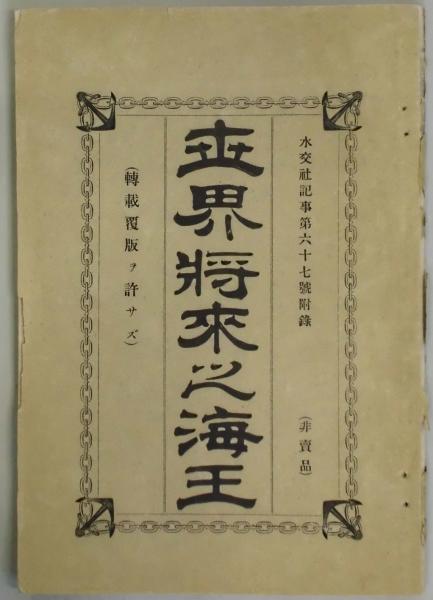 水交社記事第六十七號附錄
(非賣品)
世界將來之海王
(轉載覆版ヲ許サズ)